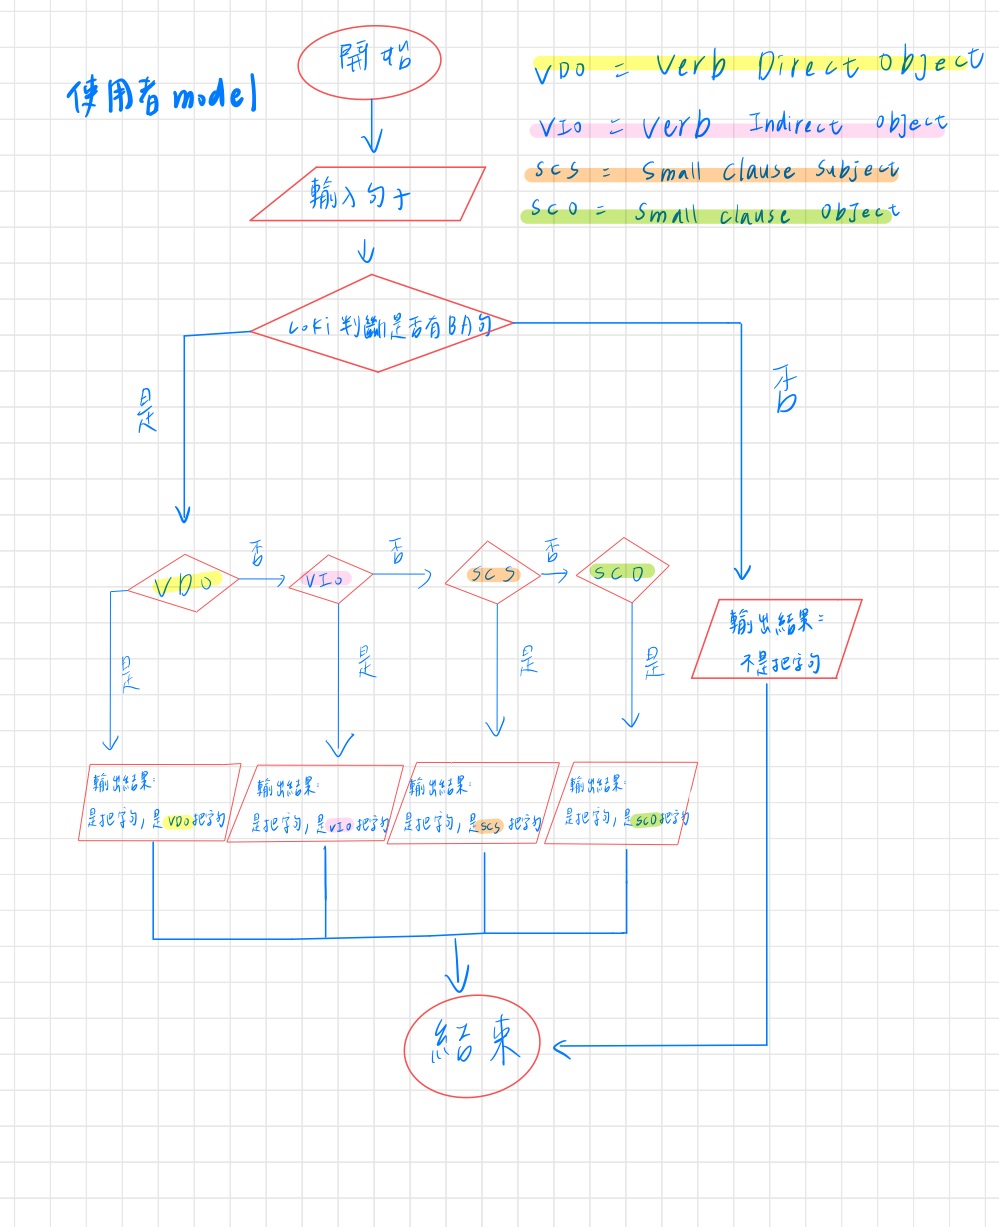 開始
使用者model
VDO = Verb Direct Object
VIO = Verb Indirect Object
SCS = Small Clause Subject
SCO = Small clause Object
輸入句子
Loki判斷是否有BA句
是
否
VDO
否
VIO
否
SCS
否
SCO
是
是
是
是
輸出結果:
不是把字句
輸出結果:
是把字句,是VDO把字句
輸出結果:
是把字句,是VIO把字句
輸出結果:
是把字句,是SCS把字句
輸出結果:
是把字句,是SCO把字句
結束